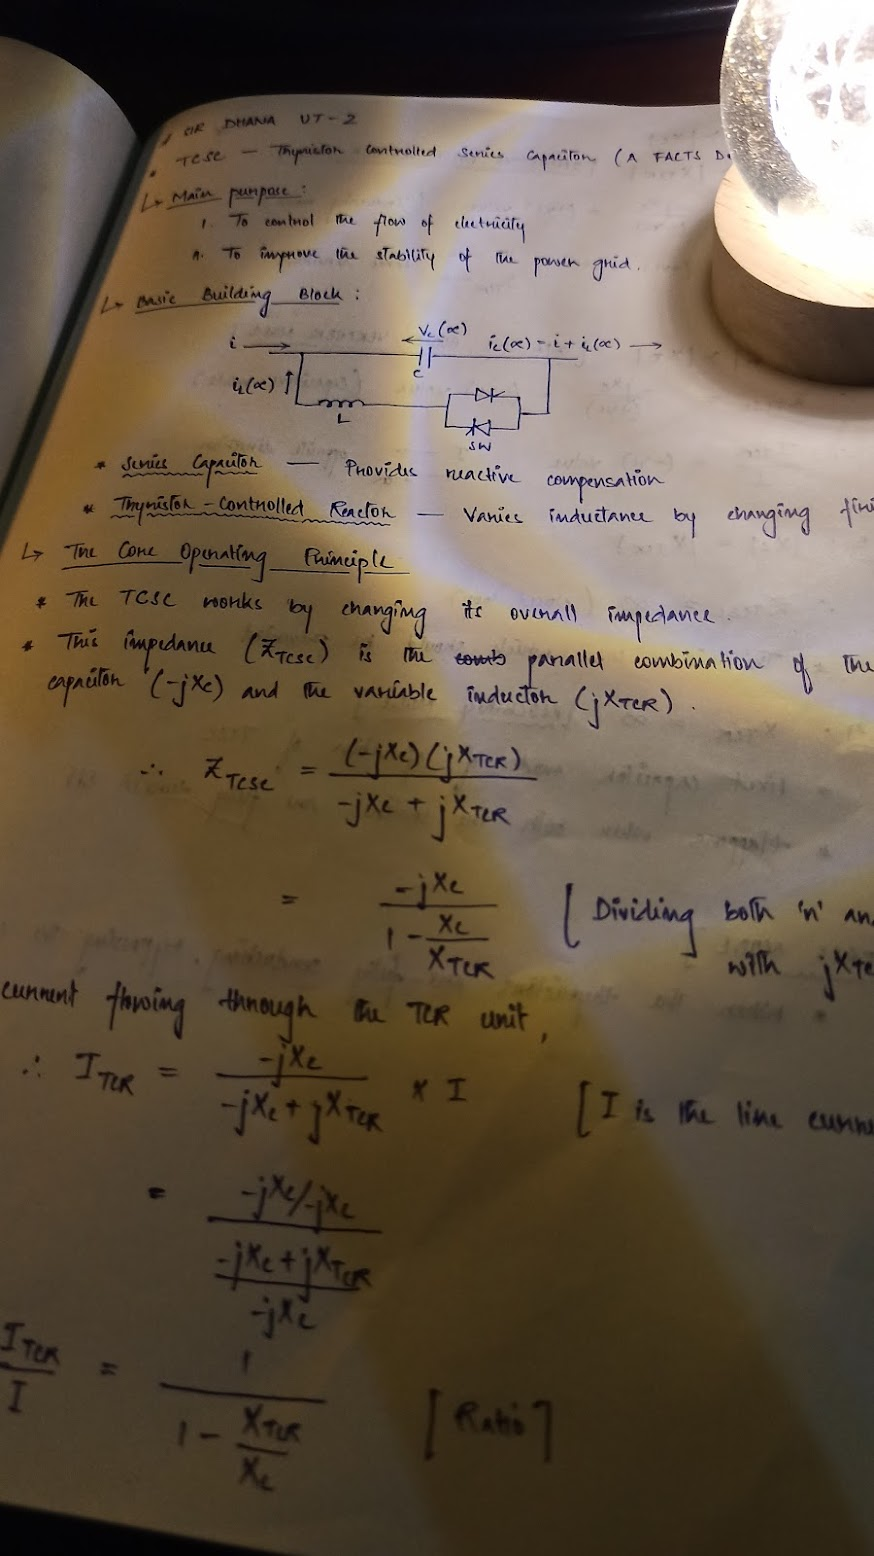 SIR DHANA UT-2
• TCSC — Thyristor Controlled Series Capacitor (A FACTS D
↳ Main purpose :
1. To control the flow of electricity
2. To improve the stability of the power grid.
↳ Basic Building Block :
i Vc(α) ic(α) = i + iL(α)
iL(α) C
L SW
* Series Capacitor — Provides reactive compensation
* Thyristor-Controlled Reactor — Varies inductance by changing firi
↳ The Core Operating Principle
* The TCSC works by changing its overall impedance.
* This impedance (ZTCSC) is the comb parallel combination of the
capacitor (-jXc) and the variable inductor (jXTCR).
∴ ZTCSC = (-jXc)(jXTCR) / -jXc + jXTCR
= -jXc / 1 - Xc/XTCR [Dividing both 'n' an
with jXTC
current flowing through the TCR unit,
∴ ITCR = -jXc / -jXc + jXTCR × I [I is the line curre
= -jXc/-jXc / -jXc + jXTCR / -jXc
ITCR/I = 1 / 1 - XTCR/Xc [Ratio]